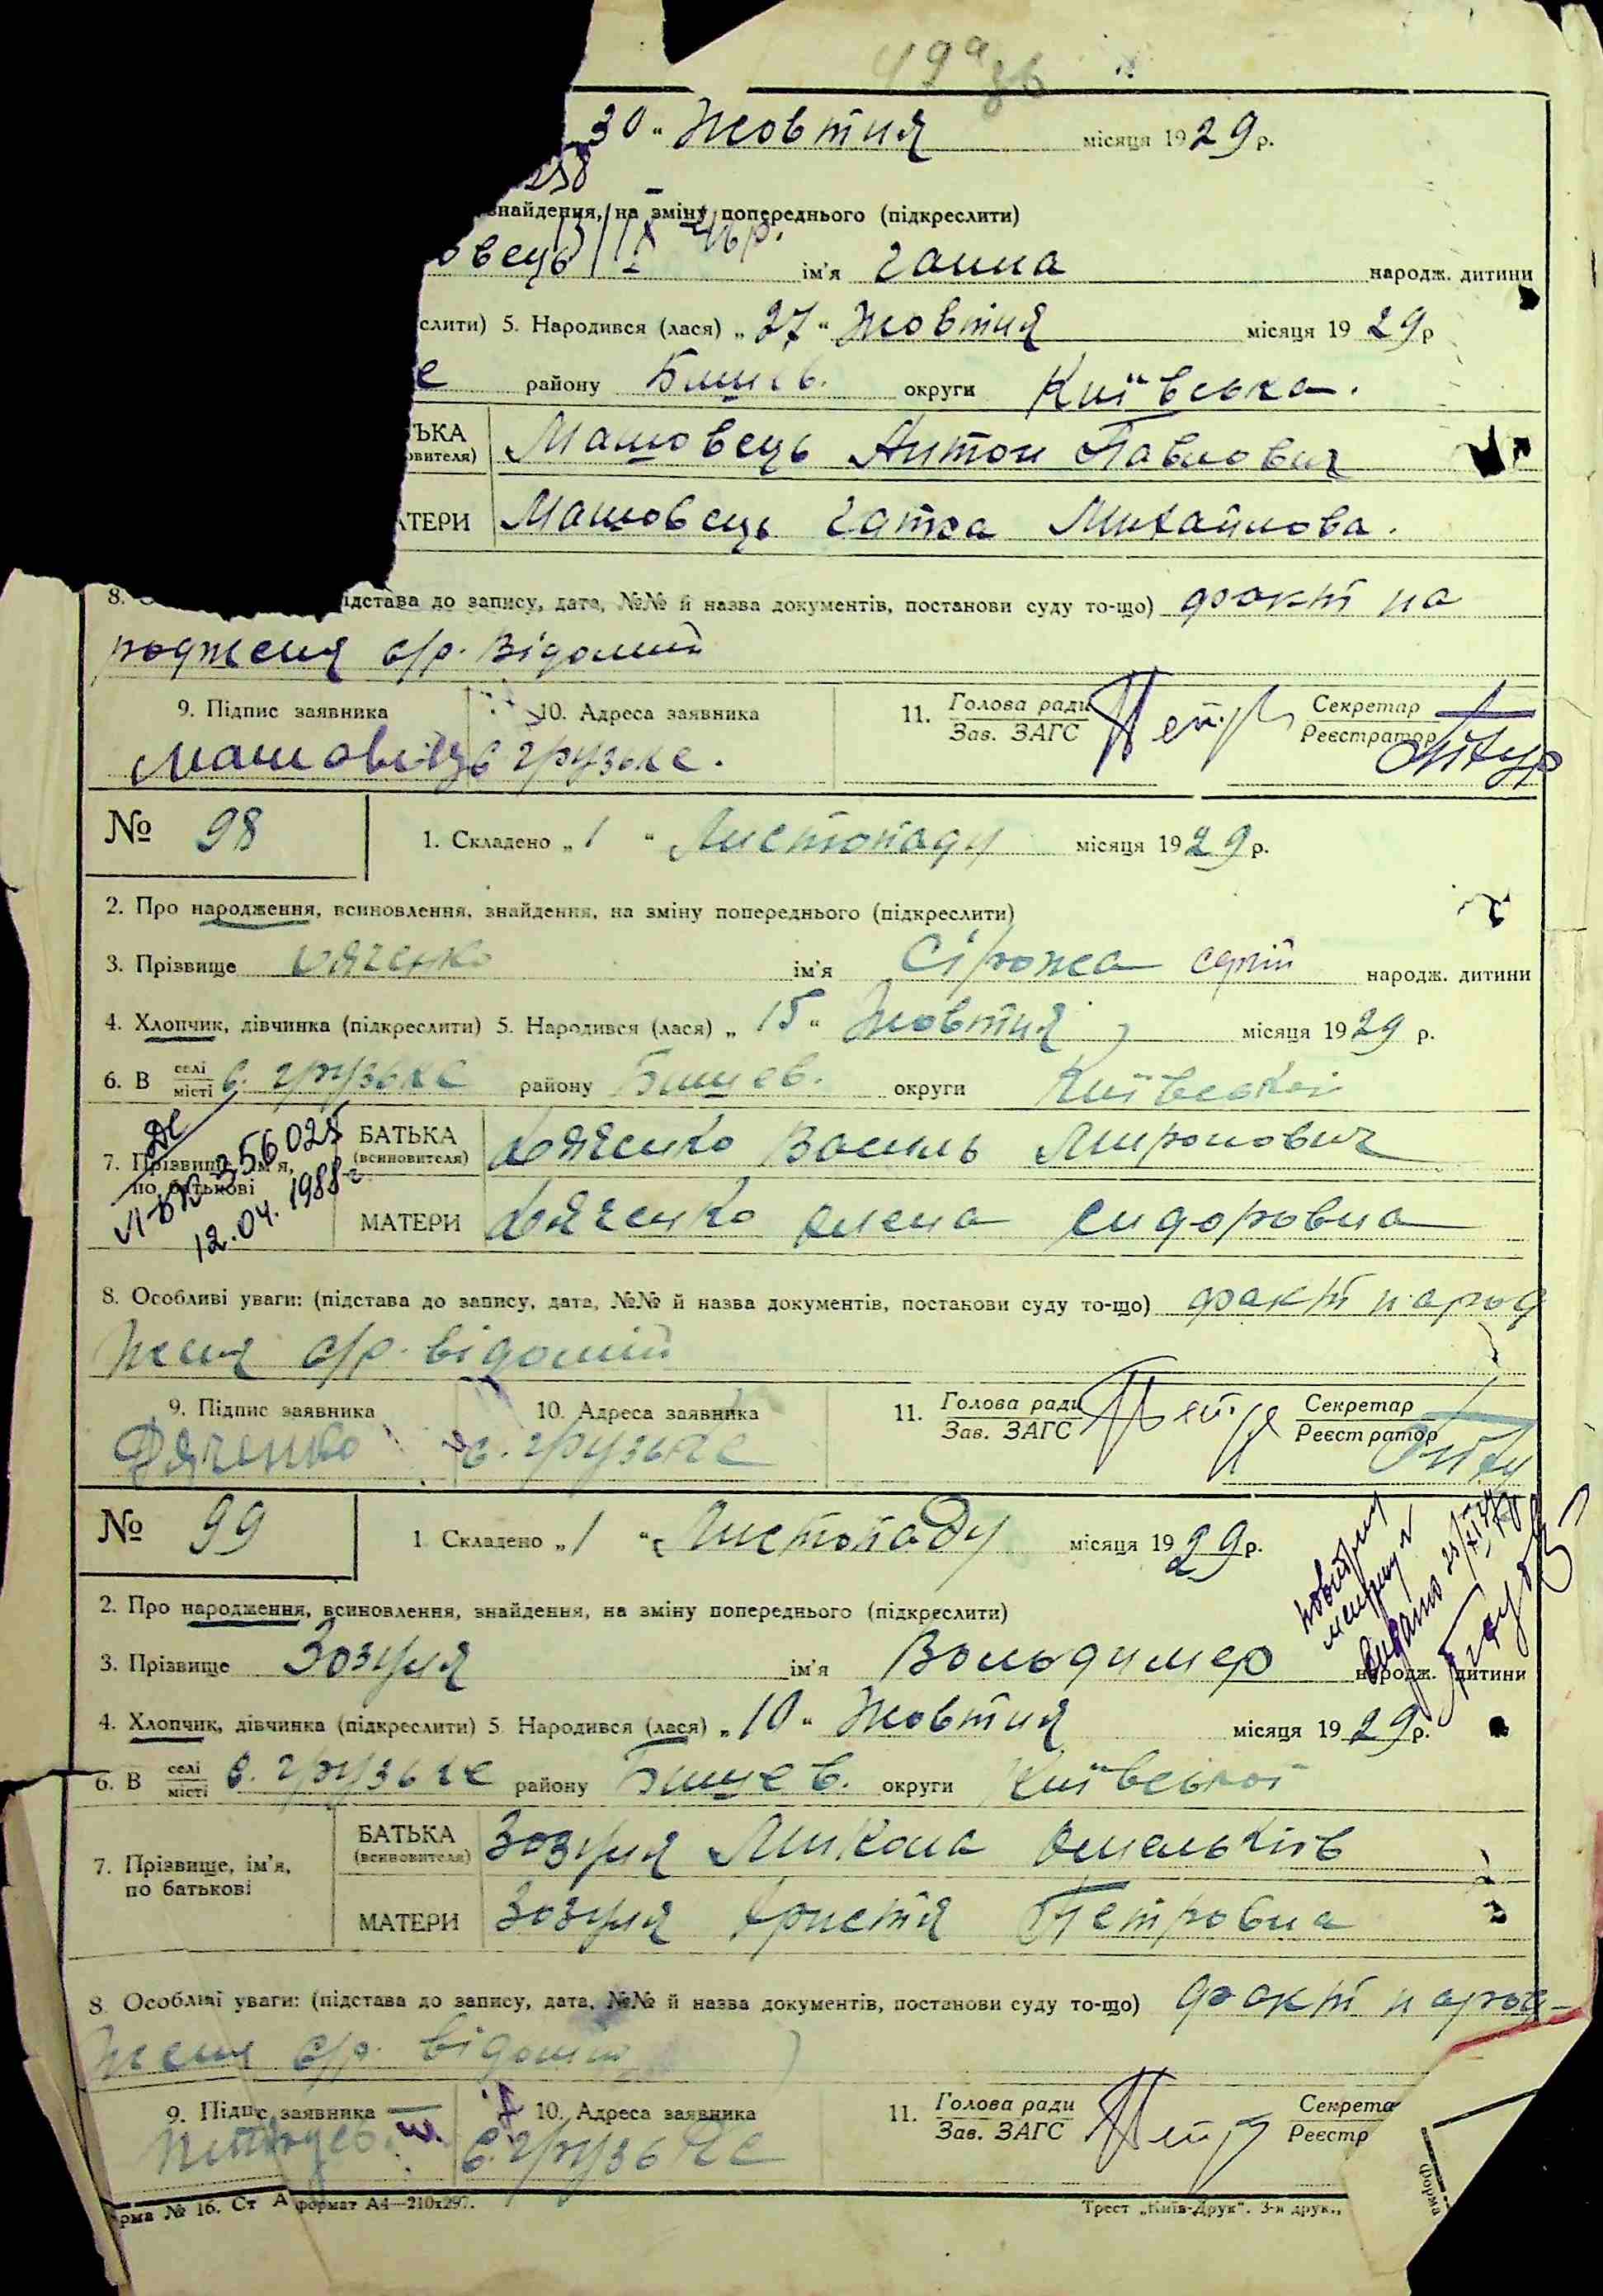 30 " Жовтня місяця 1929 р.
знайдення, на зміну попереднього (підкреслити)
овець ім'я Ганна народж. дитини
слити) 5. Народився (лася) „ 27 " Жовтня місяця 19 29 р
е району Бишев. округи Київська.
ТЬКА
овителя)
Машовець Антон Павлович
АТЕРИ Машовець Гапка Михайлова.
8. ідстава до запису, дата, №№ й назва документів, постанови суду то-що) факт на
родженя с/р. відомий
9. Підпис заявника 10. Адреса заявника 11. Голова ради Зав. ЗАГС Секретар Реєстратор
Машовець с Грузьке.
№ 98 1. Складено „ 1 " Листопаду місяця 1929 р.
2. Про народження, всиновлення, знайдення, на зміну попереднього (підкреслити)
3. Прізвище Дяченко ім'я Сірожа народж. дитини
4. Хлопчик, дівчинка (підкреслити) 5. Народився (лася) „ 15 " Жовтня місяця 1929 р.
6. В селі місті с. Грузьке району Бишев. округи Київської
7. Прізвище, ім'я, по батькові
356025
12.04.1988 г
БАТЬКА (всиновителя) Дяченко Василь Миронович
МАТЕРИ Дяченко Олена Сидоровна
8. Особливі уваги: (підстава до запису, дата, №№ й назва документів, постанови суду то-що) факт народ
женя с/р. відомий
9. Підпис заявника 10. Адреса заявника 11. Голова ради Зав. ЗАГС Секретар Реєстратор
Дяченко с. Грузьке
№ 99 1 Складено „ 1 " Листопаду місяця 1929 р.
2. Про народження, всиновлення, знайдення, на зміну попереднього (підкреслити)
3. Прізвище Зозуля ім'я Вольодимер народж. дитини
4. Хлопчик, дівчинка (підкреслити) 5 Народився (лася) „ 10 " Жовтня місяця 1929 р.
6. В селі місті с. Грузьке району Бишев. округи Київської
7. Прізвище, ім'я, по батькові
БАТЬКА (всиновителя) Зозуля Микола Омельків
МАТЕРИ Зозуля Христя Петровна
8. Особливі уваги: (підстава до запису, дата, №№ й назва документів, постанови суду то-що) факт народ-
женя с/р. відомий
9. Підпис заявника 10. Адреса заявника 11. Голова ради Зав. ЗАГС Секрета Реєстр
с. Грузьке
рма № 16. Ст А формат А4—210х297. Трест „Київ-Друк". 3-я друк.,
Форма